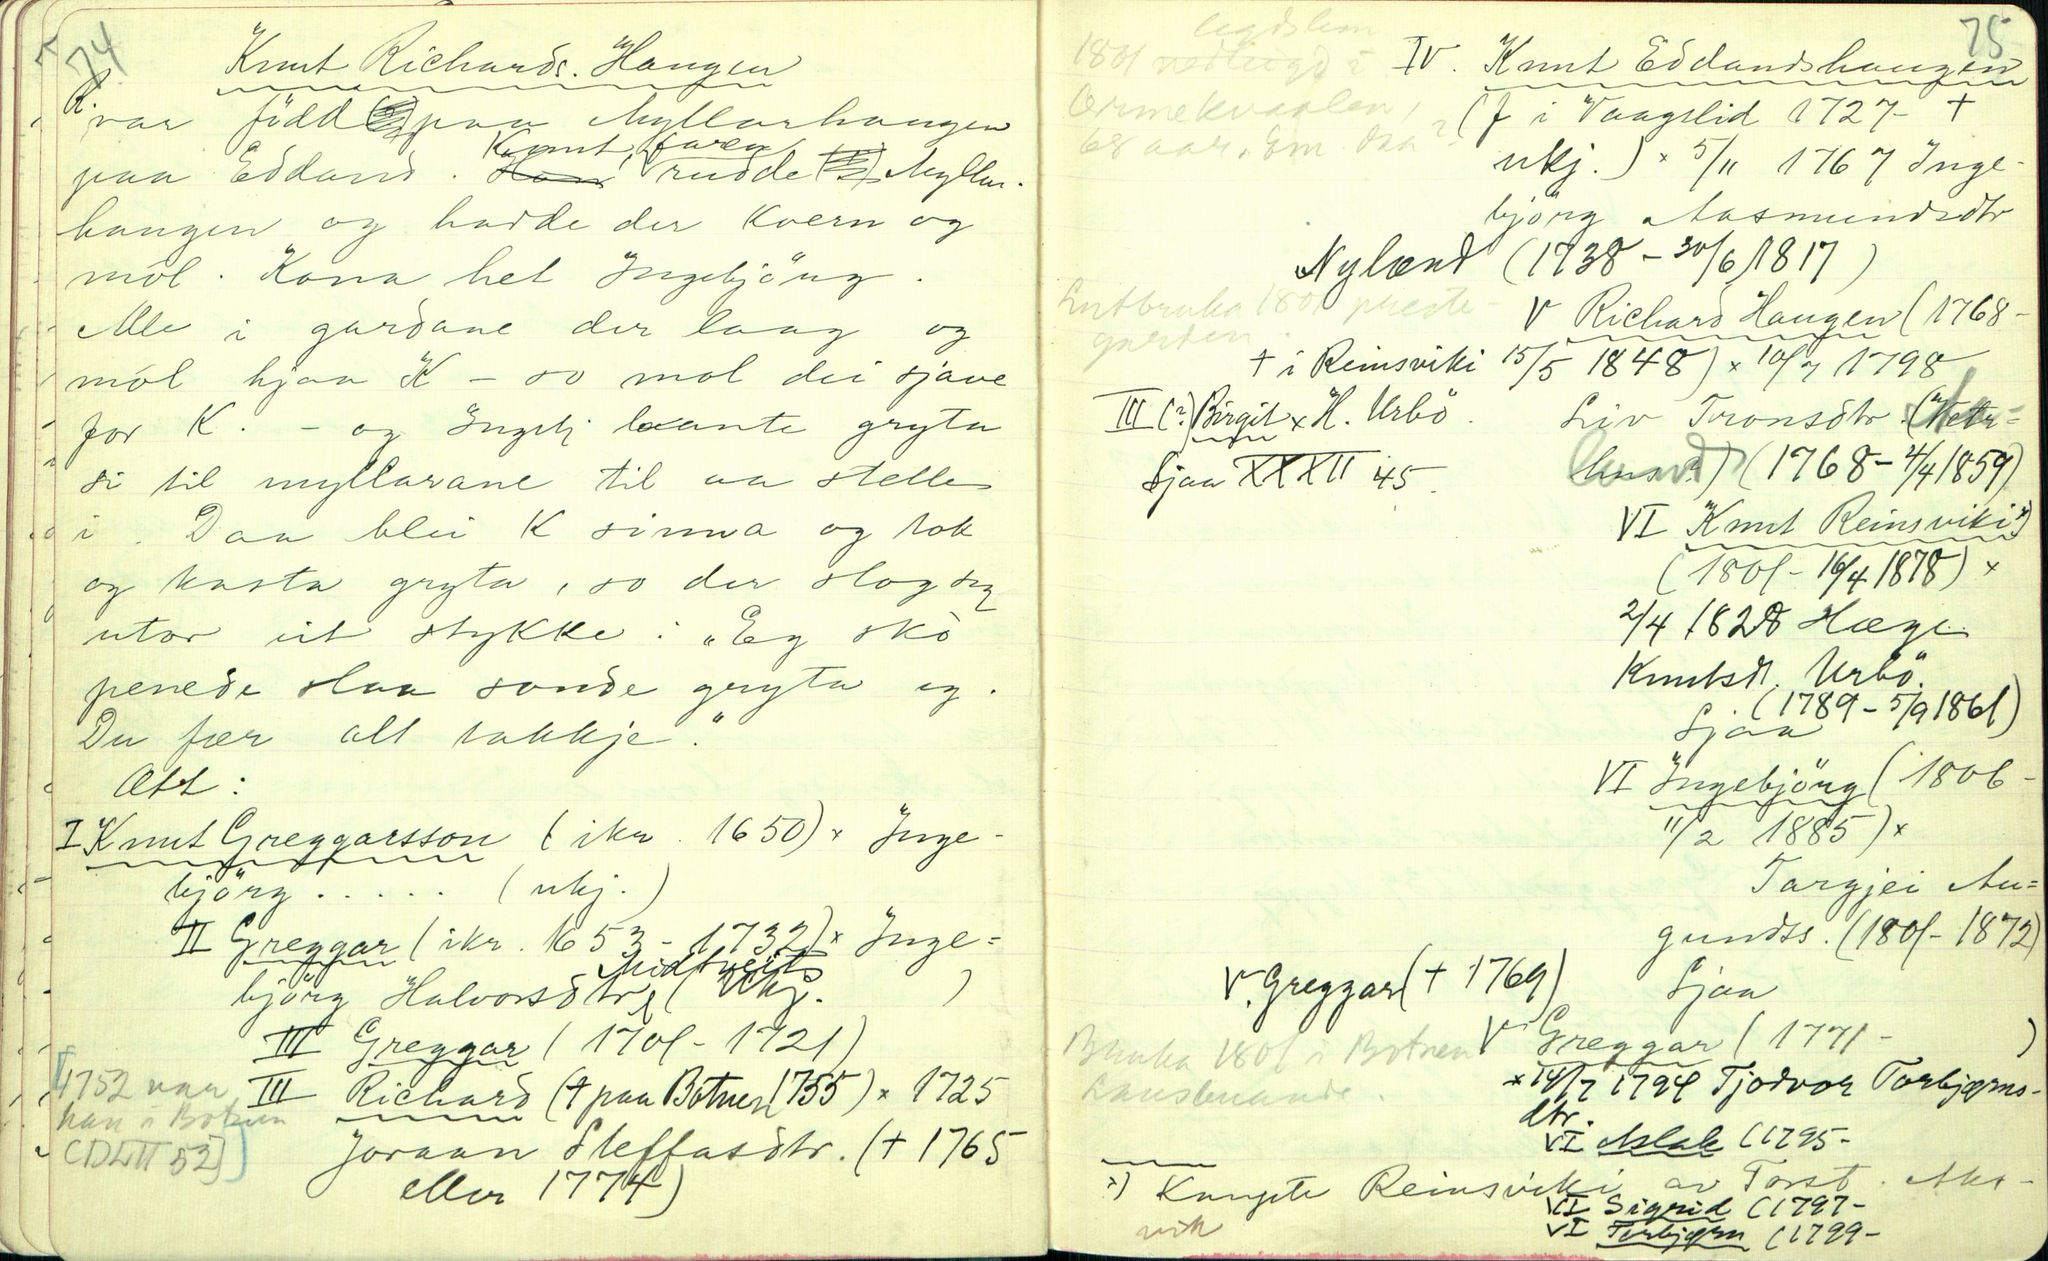 74
Knut Richards. Haugen
K. var född paa Myllarhaugen
paa Eddand. Knut, faren, rudde Myllar-
haugen og hadde der kvern og
möl. Kona het Ingebjörg.
Alle i gardane der laag og
möl hjaa K – so mol dei sjave
for K. – og Ingebj laante gryta
si til myllarane til aa stelle
i. Daa blei K sinna og tok
og kasta gryta, so der slog seg
utor eit stykke: "Eg skò
penede slaa sonde gryta eg.
Du fær alt takkje."
Ætt:
I Knut Greggarsson (ikr. 1650) × Inge-
björg ..... (ukj.)
II Greggar (ikr. 1653 - 1732) × Inge=
björg Halvorsdtr Midtveits (Ukj. )
III Greggar (1701 - 1721)
III Richard († paa Botnen 1755) × 1725
Joraan Steffasdtr. († 1765
eller 1774)
1752 var
han i Botnen
(DLII 52)
75
IV. Knut Eddandshaugen
(f i Vaagslid 1727 - †
ukj.) × 5/11 1767 Inge-
björg Aasmundsdtr
Nyland (1738 - 30/6 1817)
legdslem
1801
Ormekvaalen,
68 aar.
V Richard Haugen (1768 -
† i Reinsviki 15/5 1848) × 10/7 1798
Liv Tronsdtr.
(1768 - 4/4 1859)
1801 preste-
garden.
III (?) Birgit × H. Urbö.
Sjaa XXXII 45.
VI Knut Reinsviki ×)
(1801 - 16/4 1878) ×
2/4 1828 Hæge
Knutsdt. Urbö.
(1789 - 5/9 1861)
Sjaa
VI Ingebjörg (1806 -
11/2 1885) ×
Targjei Au=
gundss. (1801 - 1872)
Sjaa
V. Greggar († 1769)
V Greggar (1771 - )
× 14/7 1794 Tjodvor Torbjørns-
dtr.
Bruka 1801 i Botnen
Lausbuande.
VI Aslak (1795 -
×) Kaupte Reinsviki av Torst. Aka-
vik
VI Sigrid (1797 -
VI Torbjørn (1799 -